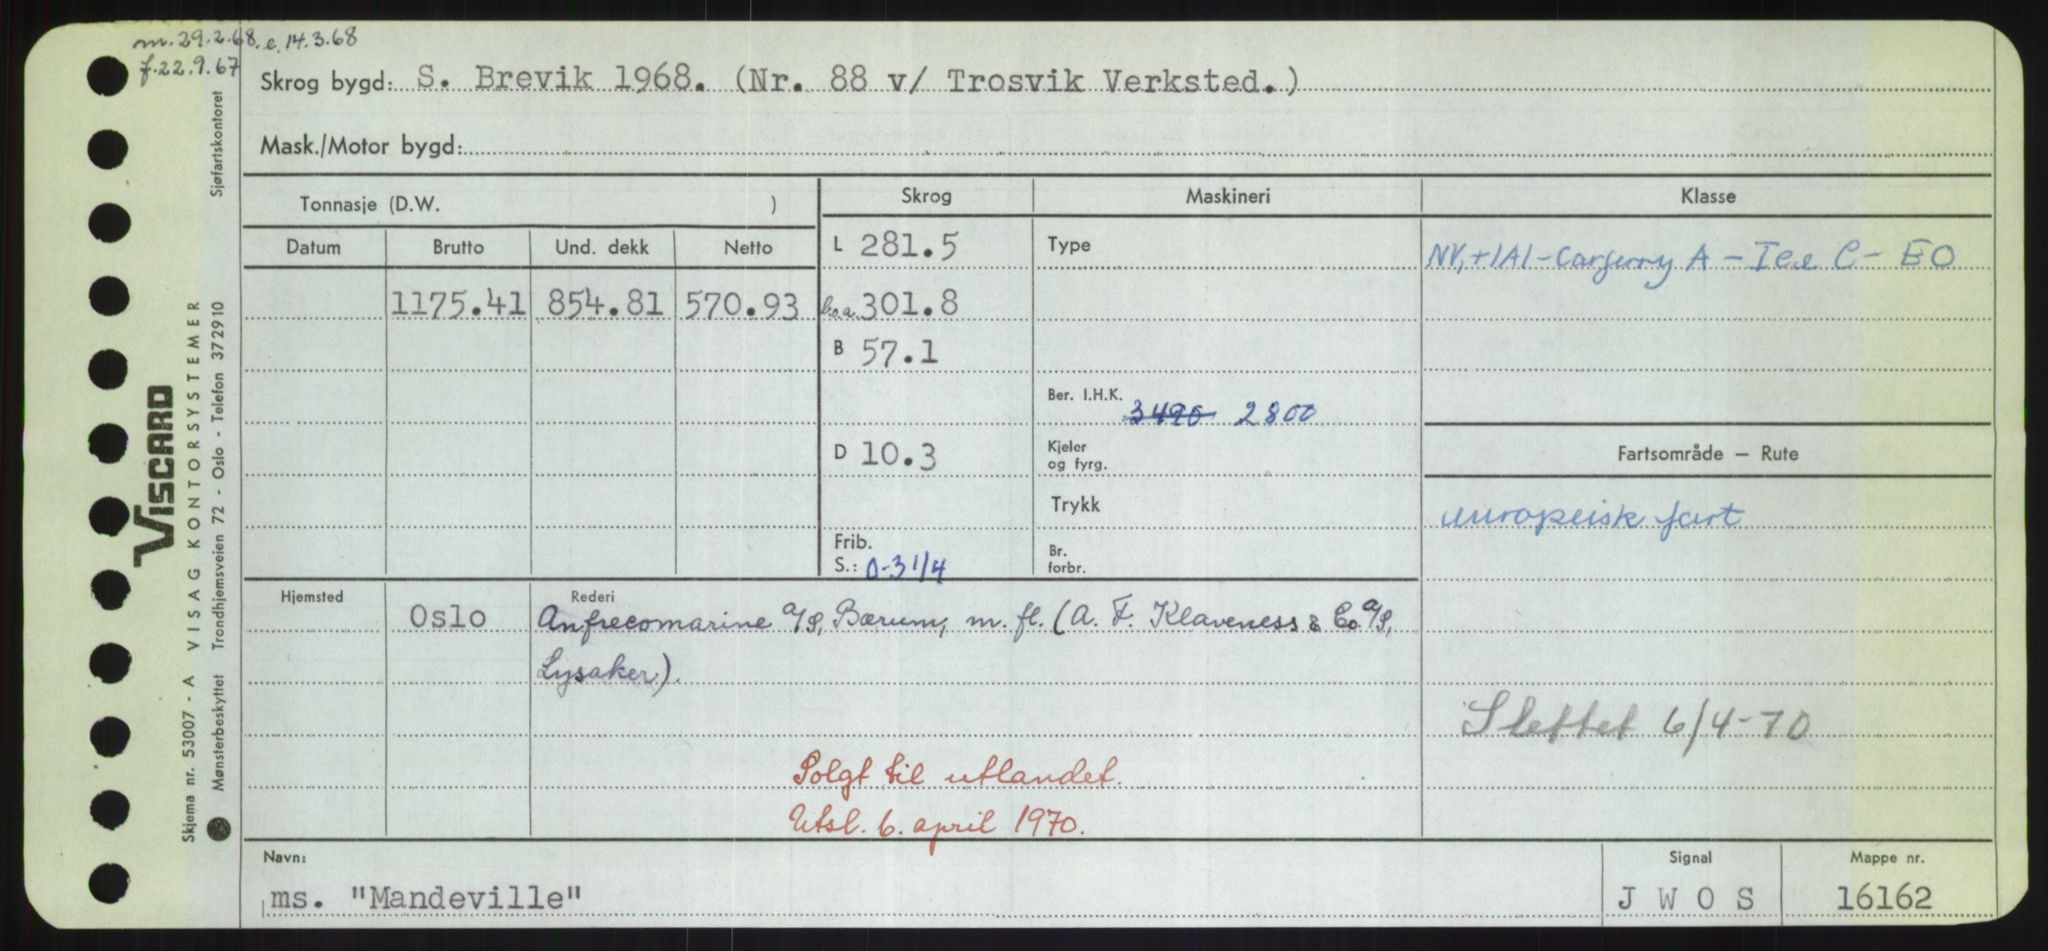 m. 29.2.68. e. 14.3.68
f. 22.9.67
Skrog bygd: S. Brevik 1968. (Nr. 88 v/ Trosvik Verksted.)
Mask./Motor bygd:
Tonnasje (D.W. )
Skrog
Maskineri
Klasse
Datum
Brutto
Und. dekk
Netto
L 281.5
Type
NV, +1A1-Carferry A - Ice C - EO
1175.41
854.81
570.93
l.o.a. 301.8
B 57.1
Ber. I.H.K.
3490 2800
D 10.3
Kjeler
og fyrg.
Fartsområde — Rute
Trykk
europeisk fart
Frib.
S.: 0-3 1/4
Br.
forbr.
Hjemsted
Oslo
Rederi
Anfrecomarine A/S, Bærum, m. fl. (A. F. Klaveness & Co. A/S,
Lysaker).
Slettet 6/4-70
Solgt til utlandet.
Utsl. 6. april 1970.
Navn:
ms. "Mandeville"
Signal
J W O S
Mappe nr.
16162
VISCARD
Skjema nr. 53007 - A VISAG KONTORSYSTEMER
Mønsterbeskyttet Trondhjemsveien 72 - Oslo - Telefon 372910 Sjøfartskontoret